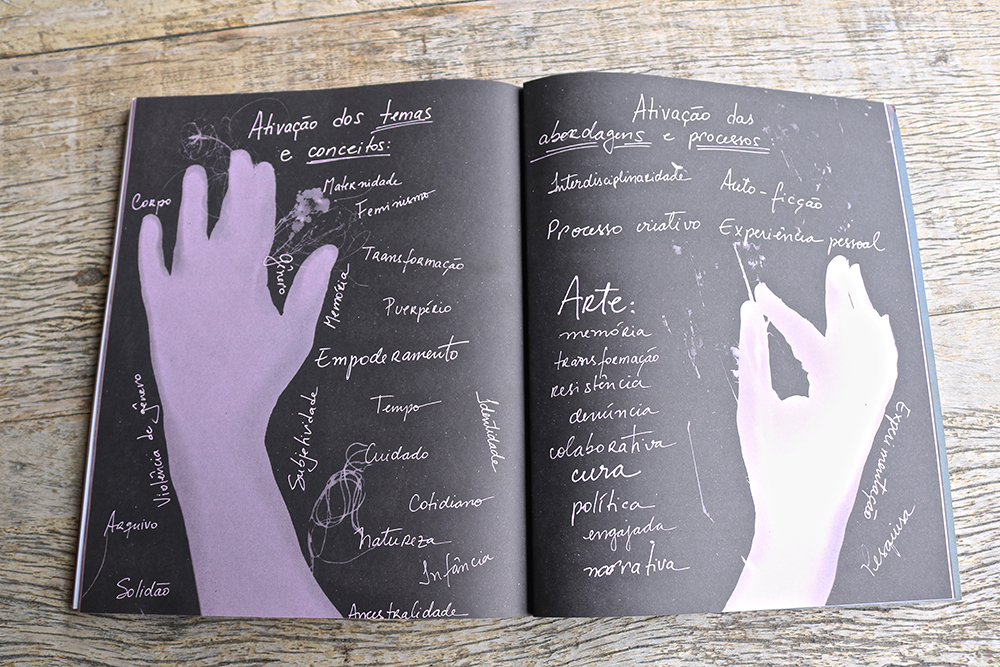 Ativação dos temas
e conceitos:
Maternidade
Feminismo
Corpo
Transformação
Memória
Puerpério
Empoderamento
Tempo
Identidade
Subjetividade
Violência de gênero
Cuidado
Cotidiano
Arquivo
Natureza
Infância
Solidão
Ancestralidade
Ativação das
abordagens e processos
Interdisciplinaridade
Auto-
ficção
Processo criativo
Experiência pessoal
Arte:
memória
transformação
resistência
denúncia
colaborativa
cura
política
engajada
narrativa
Experimentação
Pesquisa